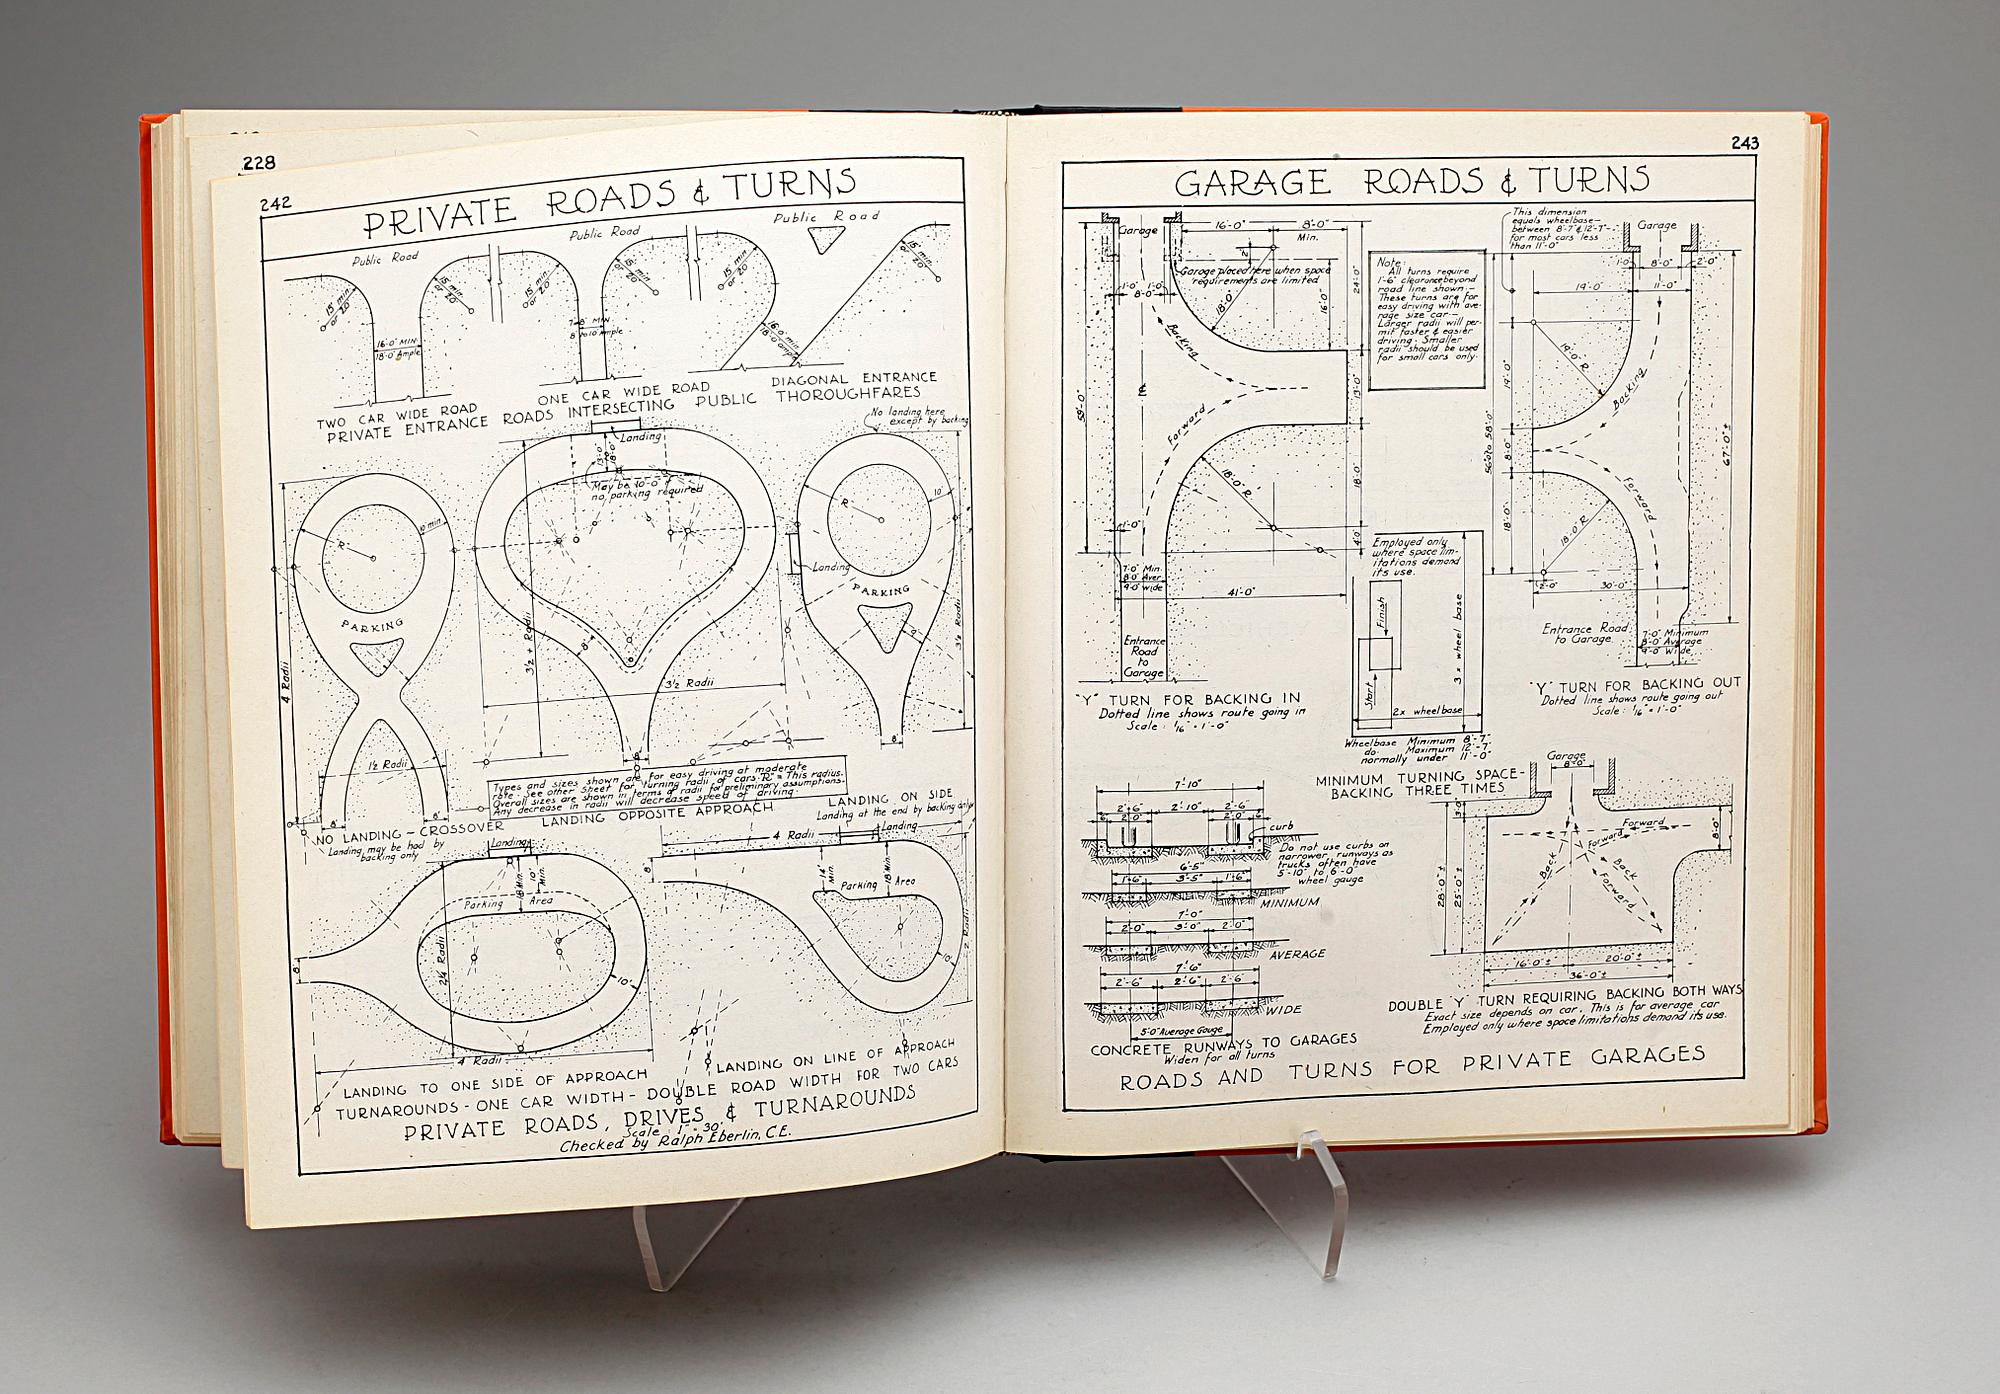 228
242
PRIVATE ROADS & TURNS
Public Road
Public Road
Public Road
15' min.
or 20'
15' min.
or 20'
15' min.
or 20'
15' min.
or 20'
15' min.
or 20'
16'-0" MIN.
18'-0" Ample
MIN.
16'-0" min.
18'-0" ample
TWO CAR WIDE ROAD
ONE CAR WIDE ROAD
DIAGONAL ENTRANCE
PRIVATE ENTRANCE ROADS INTERSECTING PUBLIC THOROUGHFARES
No landing here
except by backing
Landing
May be 10'-0" if
no parking required
R
10' min.
PARKING
4 Radii
1½ Radii
8'
8'
3½ + Radii
3½ Radii
8'
R
10'
Landing
PARKING
3½ Radii
8'
Types and sizes shown are for easy driving at moderate
rate. See other sheet for turning radii of cars. "R" = This radius.
Overall sizes are shown in terms of radii for preliminary assumptions.
Any decrease in radii will decrease speed of driving.
NO LANDING – CROSSOVER
Landing may be had by
backing only
LANDING OPPOSITE APPROACH
LANDING ON SIDE
Landing at the end by backing only
Landing
18' Min.
10' Min.
Parking Area
2¼ Radii
8'
10'
4 Radii
4 Radii
Landing
8'
14' Min.
18' Min.
Parking Area
2 Radii
10'
LANDING TO ONE SIDE OF APPROACH
LANDING ON LINE OF APPROACH
TURNAROUNDS - ONE CAR WIDTH - DOUBLE ROAD WIDTH FOR TWO CARS
PRIVATE ROADS, DRIVES & TURNAROUNDS
Scale 1" = 30'
Checked by Ralph Eberlin, C.E.
243
GARAGE ROADS & TURNS
Garage
16'-0"
8'-0"
Min.
Garage placed here when space
requirements are limited
1'-0"
1'-0"
8'-0"
18'-0" R.
16'-0"
24'-0"
Backing
59'-0"
13'-0"
Forward
18'-0" R.
18'-0"
4'-0"
1'-0"
7'-0" Min.
8'-0" Aver.
9'-0" wide
41'-0"
Entrance
Road
to
Garage
"Y" TURN FOR BACKING IN
Dotted line shows route going in
Scale: 1/16" = 1'-0"
Note:
All turns require
1'-6" clearance beyond
road line shown.–
These turns are for
easy driving with ave-
rage size car –
Larger radii will per-
mit faster & easier
driving. Smaller
radii should be used
for small cars only.
This dimension
equals wheelbase –
between 8'-7" & 12'-7" –
for most cars less
than 11'-0"
Garage
1'-0"
8'-0"
2'-0"
19'-0"
11'-0"
19'-0" R.
Backing
19'-0"
56'-0" to 58'-0"
8'-0"
67'-0" ±
Forward
18'-0"
18'-0" R.
2'-0"
30'-0"
Entrance Road
to Garage
7'-0" Minimum
8'-0" Average
9'-0" Wide
"Y" TURN FOR BACKING OUT
Dotted line shows route going out
Scale: 1/16" = 1'-0"
Employed only
where space lim-
itations demand
its use.
Finish
Start
3 x wheel base
2 x wheelbase
Wheelbase Minimum 8'-7"
do. Maximum 12'-7"
normally under 11'-0"
MINIMUM TURNING SPACE-
BACKING THREE TIMES
7'-10"
2'-6"
2'-10"
2'-6"
2'-0"
2'-0"
curb
Do not use curbs on
narrower runways as
trucks often have
5'-10" to 6'-0"
wheel gauge
6'-5"
1'-6"
3'-5"
1'-6"
MINIMUM
7'-0"
2'-0"
3'-0"
2'-0"
AVERAGE
7'-6"
2'-6"
2'-6"
2'-6"
WIDE
5'-0" Average Gauge
CONCRETE RUNWAYS TO GARAGES
Widen for all turns
Garage
8'-0"
3'-0"
Forward
Forward
Back
Back
Forward
8'-0"
28'-0" ±
25'-0" ±
16'-0" ±
20'-0" ±
36'-0" ±
DOUBLE "Y" TURN REQUIRING BACKING BOTH WAYS
Exact size depends on car. This is for average car
Employed only where space limitations demand its use.
ROADS AND TURNS FOR PRIVATE GARAGES